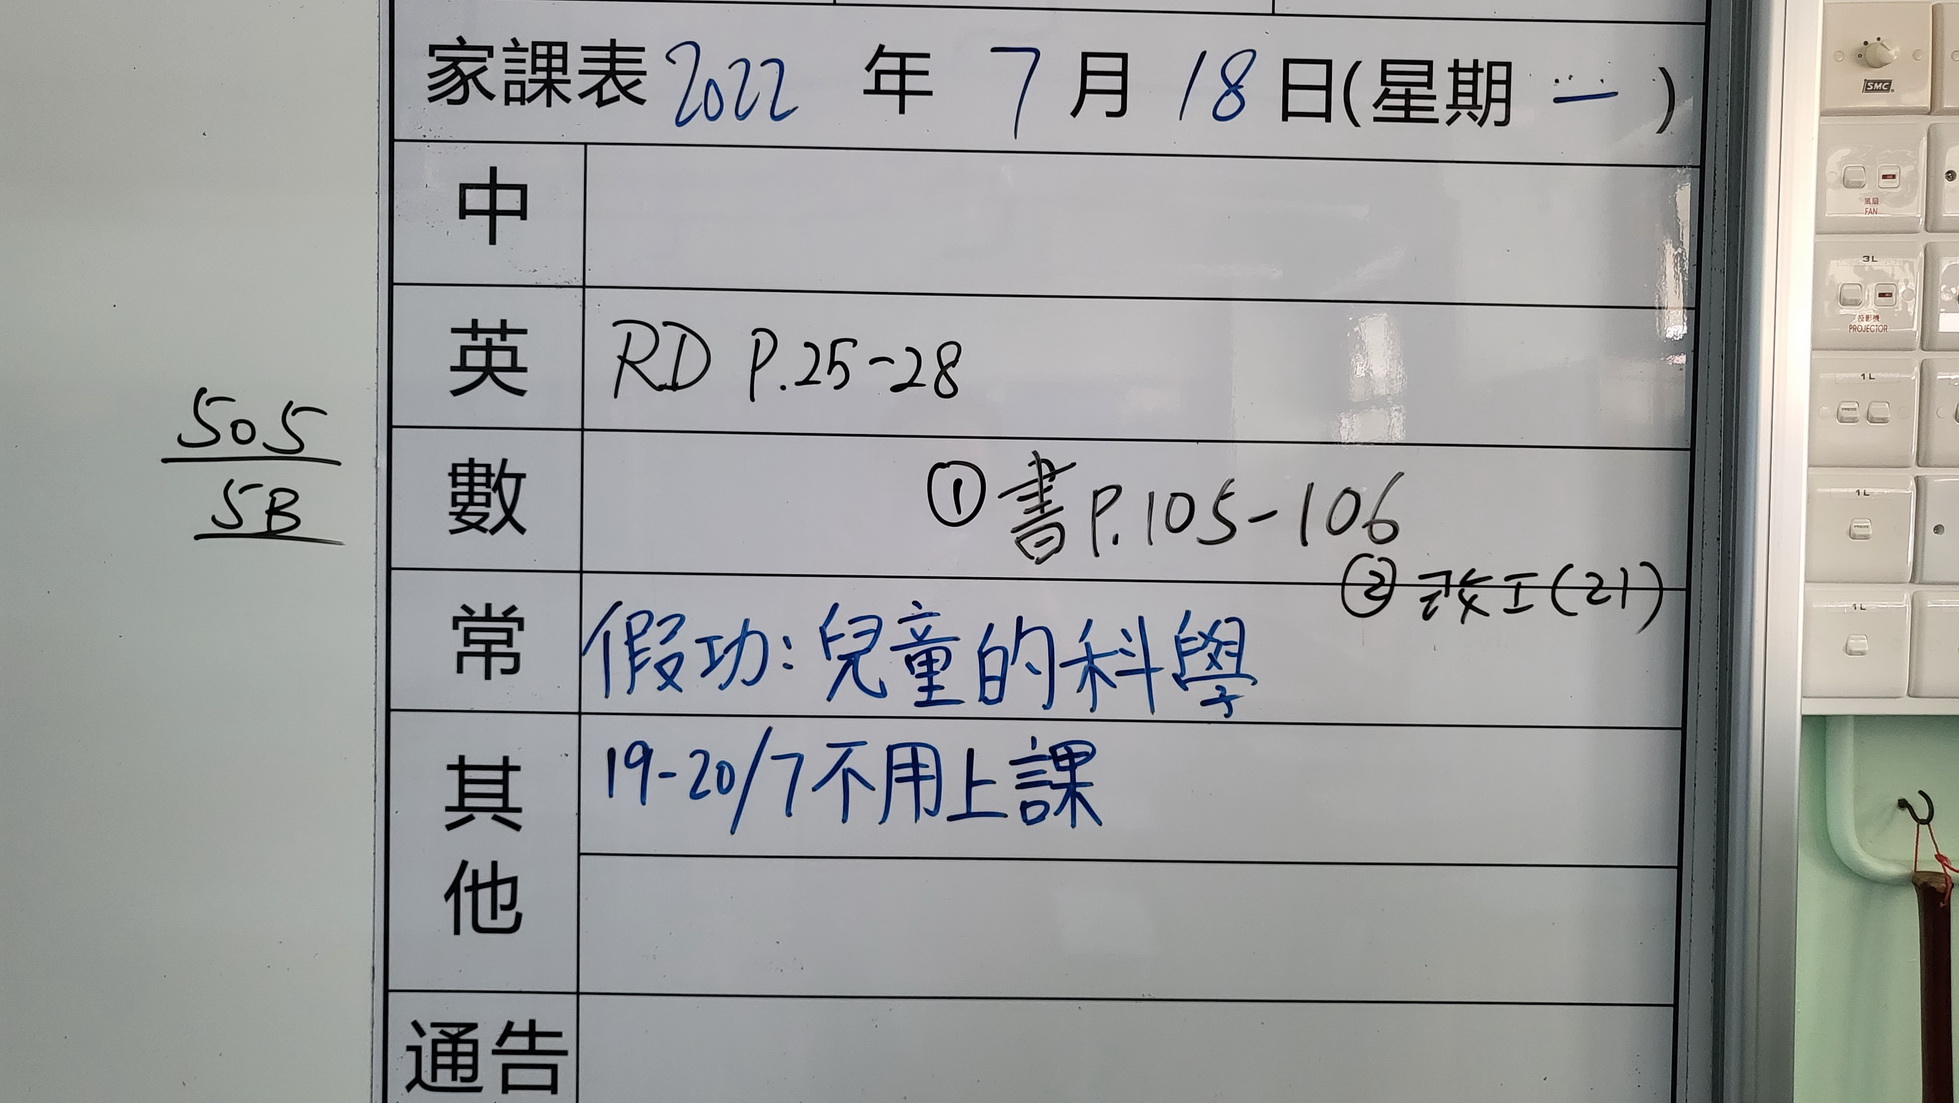 家課表 2022 年 7 月 18 日(星期 一 )
中
英 RD P.25-28
505
5B
數 ① 書 P.105-106
② 改工(21)
常 假功:兒童的科學
其他 19-20/7 不用上課
通告
SMC
風扇
FAN
3L
投影機
PROJECTOR
1L
1L
1L